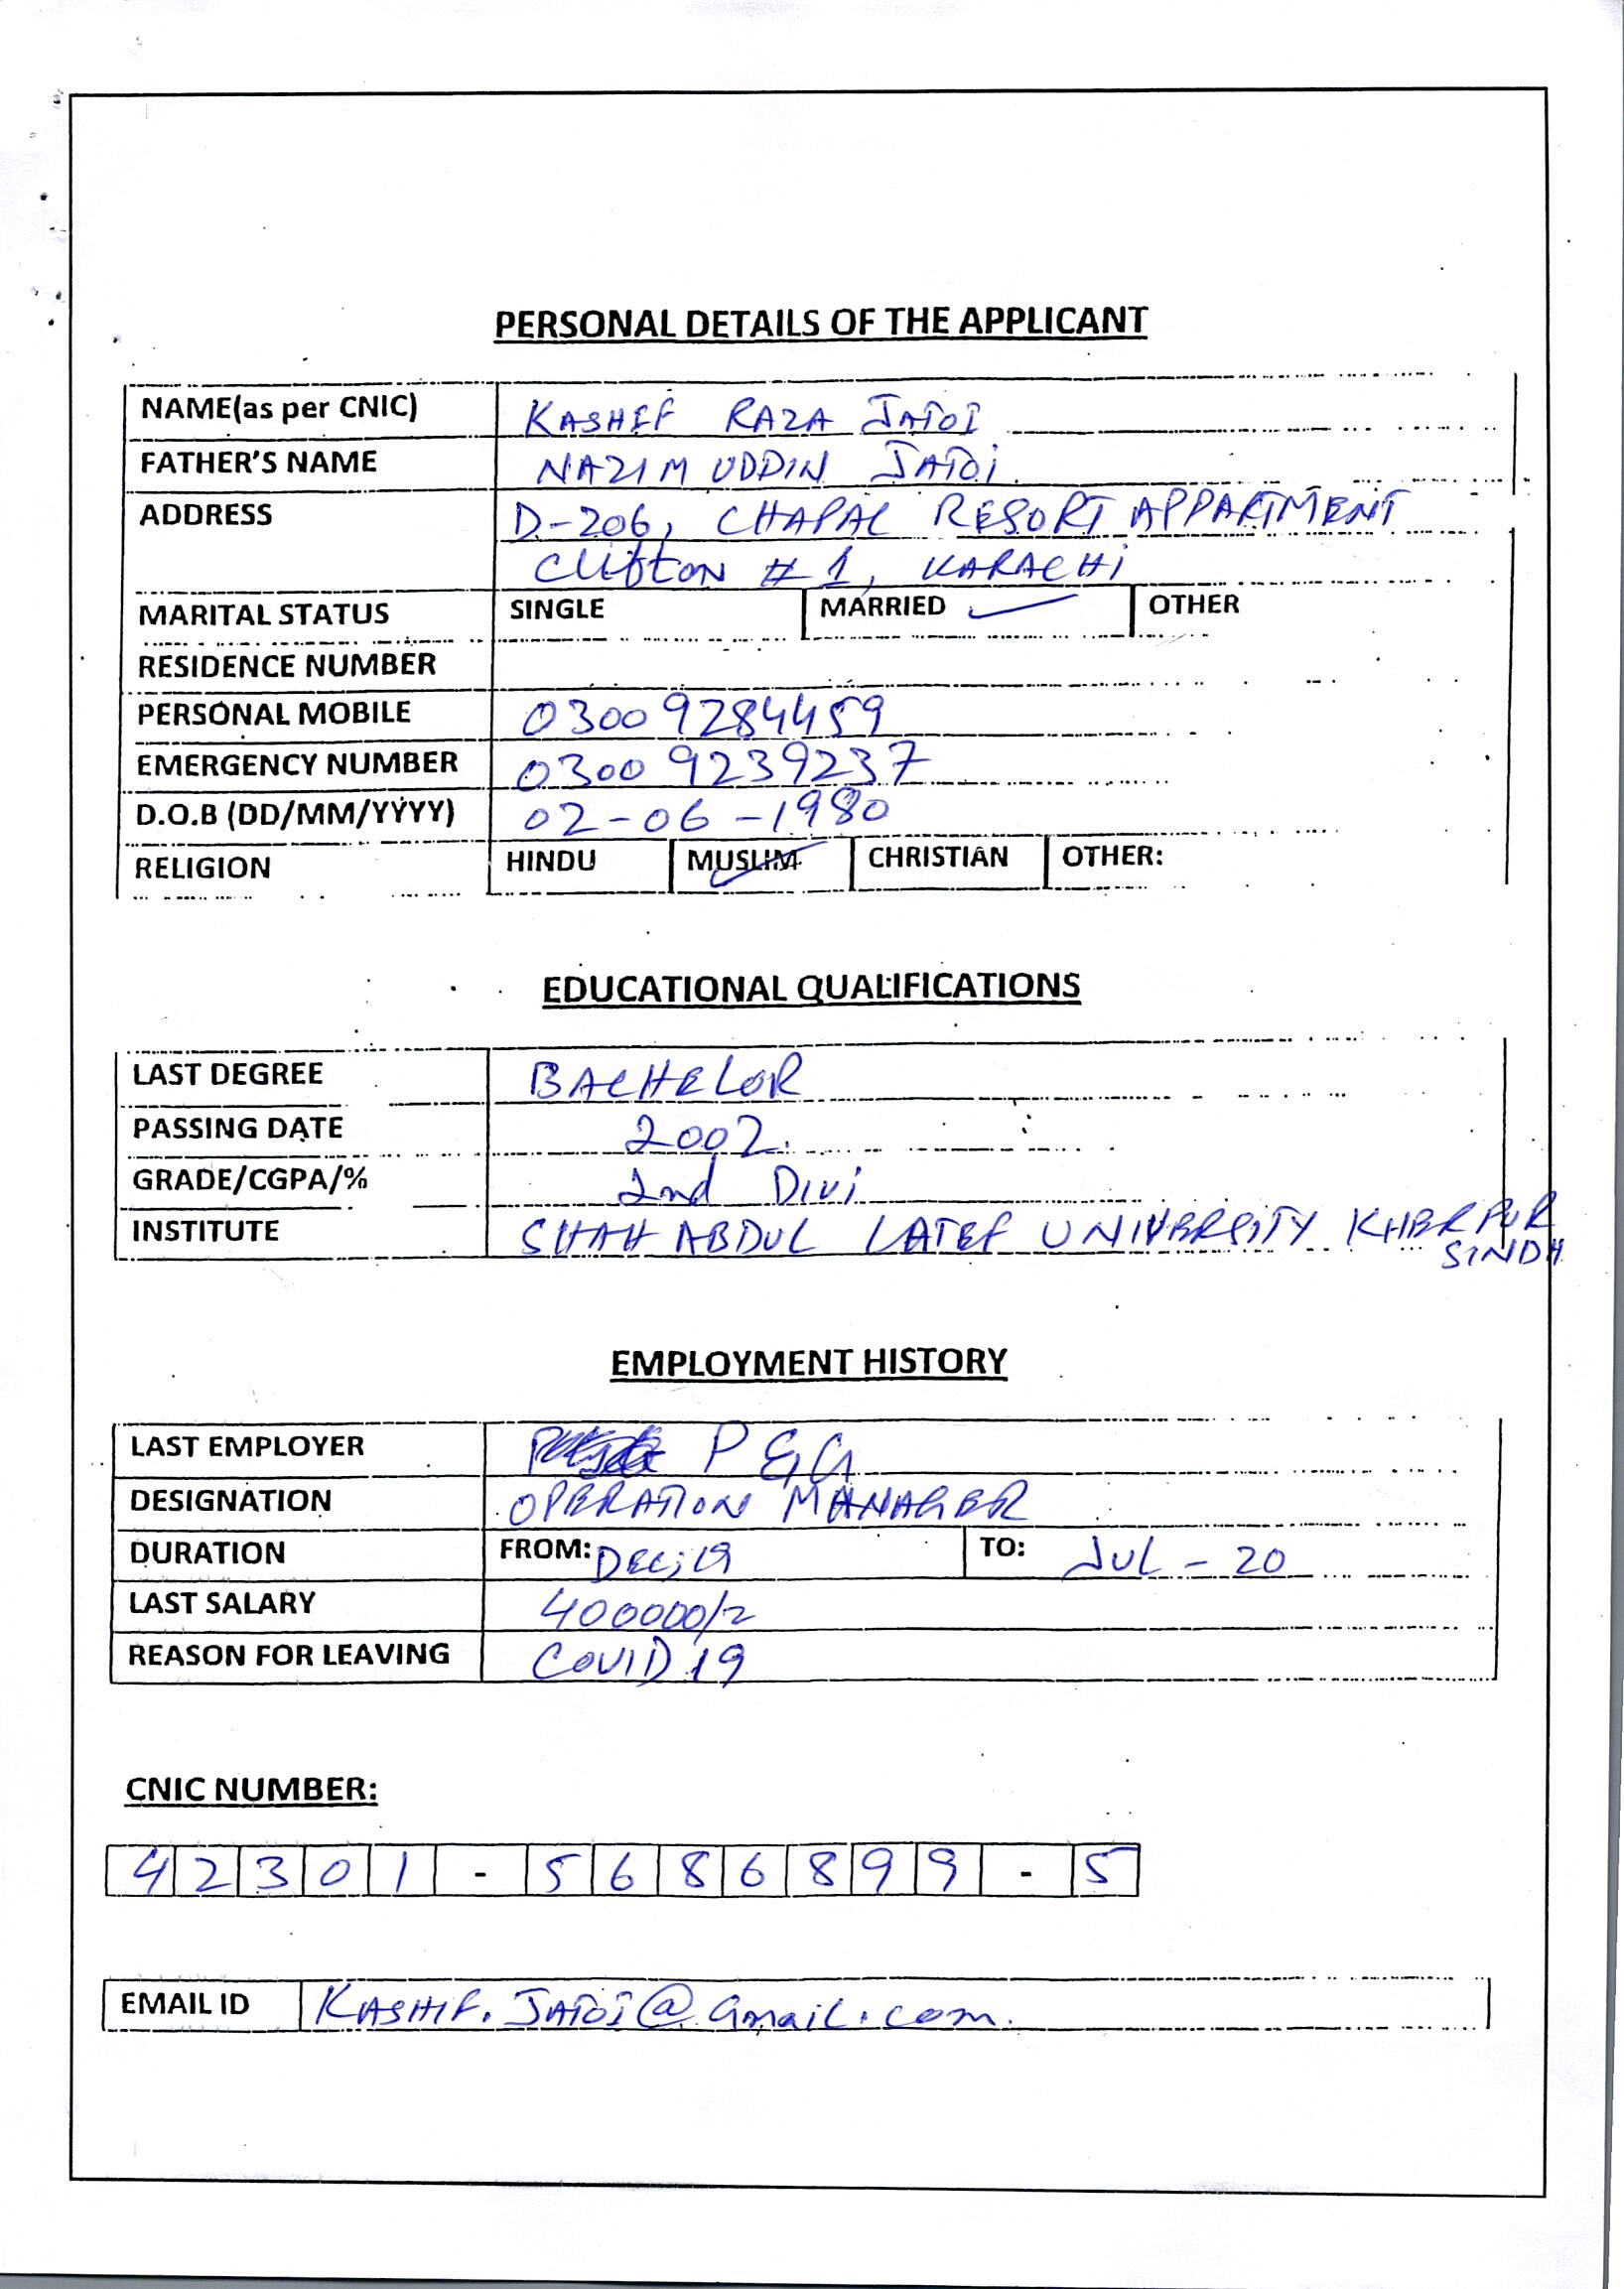 PERSONAL DETAILS OF THE APPLICANT
NAME(as per CNIC) KASHIF RAZA JATOI
FATHER'S NAME NAZIM UDDIN JATOi
ADDRESS D-206, CHAPAL RESORT APPARTMENT
Clifton # 1, KARACHi
MARITAL STATUS SINGLE MARRIED ✓ OTHER
RESIDENCE NUMBER
PERSONAL MOBILE 0300 9284459
EMERGENCY NUMBER 0300 9239237
D.O.B (DD/MM/YYYY) 02-06-1980
RELIGION HINDU MUSLIM ✓ CHRISTIAN OTHER:
EDUCATIONAL QUALIFICATIONS
LAST DEGREE BACHELOR
PASSING DATE 2002.
GRADE/CGPA/% 2nd Divi
INSTITUTE SHAH ABDUL LATEF UNIVERSITY KHERPUR
SINDH
EMPLOYMENT HISTORY
LAST EMPLOYER P & G
DESIGNATION OPERATION MANAGER
DURATION FROM: DEC; 19 TO: JUL - 20
LAST SALARY 400000/=
REASON FOR LEAVING COVID 19
CNIC NUMBER:
42301-5686899-5
EMAIL ID KASHIF.JATOI@Gmail.com.